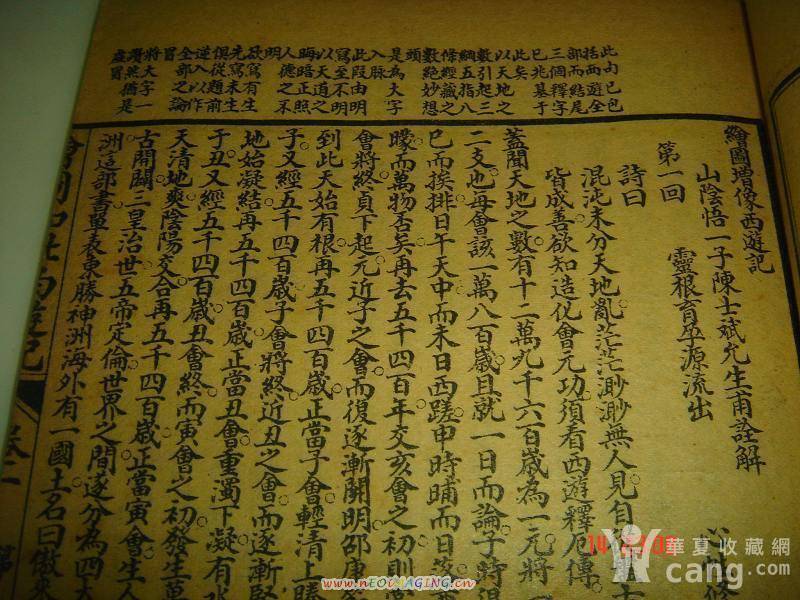 此句已包
括西遊全
部而結尾
三個釋字
已兆基于
此矣
以天地之
數引起三
綱五指八
條經藏之
數絕妙想
頭
是為大字
入脉
此段由明
寫至不明
以天道之
晦暗正照
人德之不
明
欲寫有生
先寫未生
俱從題前
逆入以作
全部之論
冒
將大字一
瀆然猶是
虛冒
繪圖增像西遊記
山陰悟一子陳士斌允生甫詮解
第一回
靈根育孕源流出
詩曰
混沌未分天地亂茫茫渺渺無人見自
皆成善欲知造化會元功須看西遊釋厄傳
蓋聞天地之數有十二萬九千六百歲為一元將一
二支也每會該一萬八百歲且就一日而論子時得
巳而挨排日午天中而未日西蹉申時晡而日
曚而萬物否矣再去五千四百年交亥會之初則
會將終貞下起元近子之會而復逐漸開明邵康
到此天始有根再五千四百歲正當子會輕清上騰
子又經五千四百歲子會將終近丑之會而逐漸堅
地始凝結再五千四百歲正當丑會重濁下凝有水
于丑又經五千四百歲丑會終而寅會之初發生萬
天清地爽陰陽交合再五千四百歲正當寅會生人
古開闢三皇治世五帝定倫世界之間遂分為四
洲這部書單表東勝神洲海外有一國土名曰傲來
華夏收藏網
cang.com
www.nEOIMAGING.cn